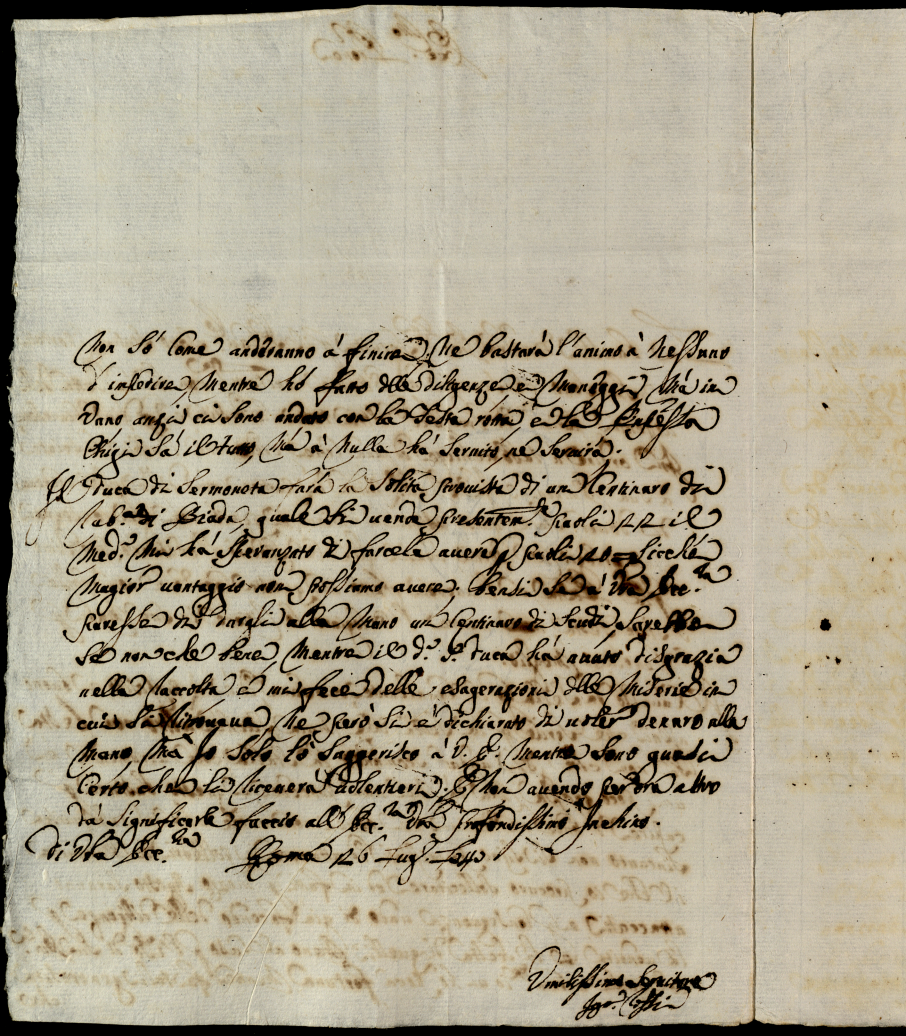 Non só come anderanno á finire, Ne bastará l'animo à Nessuno
d'insedire, Mentre hó fatto delle diligenze e Maneggi, Má in
Vano anzi ci sono andato con la Testa rotta, e la
Chigi Sá il tutto, Má à Nulla há Servito, né Servirá.
Il Duca di Sermoneta fará la Solita provista di un Centinaro di
Rub.ª di Biada, quale si vende presentem.te paoli 22 il
Med.º Mi há Speranzato di farcela avere p paoli 20 = Sicché
Magior vantaggio non possiamo avere. bensi Se á Vra Ecc.za
paresse di dargli alla Mano un Centinaro di Scudi, Sarebbe
Se non che bene, Mentre il d.º S.r Duca há avuto disgrazia
nella Raccolta e mi fece delle esagerazioni delle Miserie in
cui si ritrovava, Ne peró Si é dichiarato di voler denaro alla
Mano, Má Io Solo ló Suggerisco á V. E. Mentre Sono quasi
Certo che li riceverá volentieri. E Non avendo per ora altro
dá Significarle faccio all' Ecc.za Vra profondissimo Inchino.
Di Vra Ecc.za Roma 26 Lug.º
Umilissimo Servitore